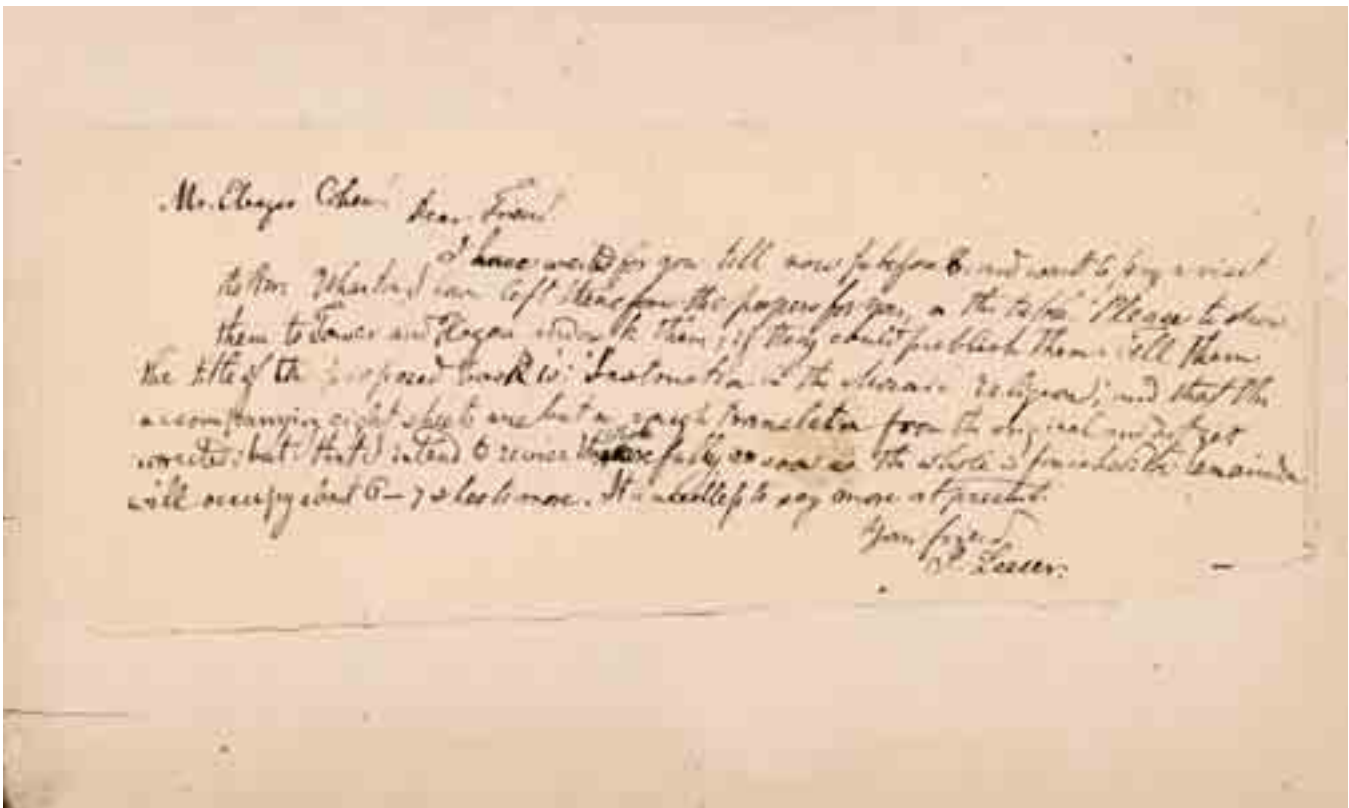 Mr. Eleazer Cohen! Dear Friend
I have waited for you till now before 6 and want to pay a visit
to Mr. and have left the papers for you, on the table. Please to show
them to Tower and Hogan ask them, if they could publish them; tell them
the title of the proposed book is: Instruction in the Mosaic religion; and that the
accompanying eight sheets are but a rough translation from the original and not yet
corrected; but that I intend to review carefully as soon as the whole is finished; the remainder
will occupy about 6–7 sheets more. It is needless to say more at present.
Your friend
I. Leeser.